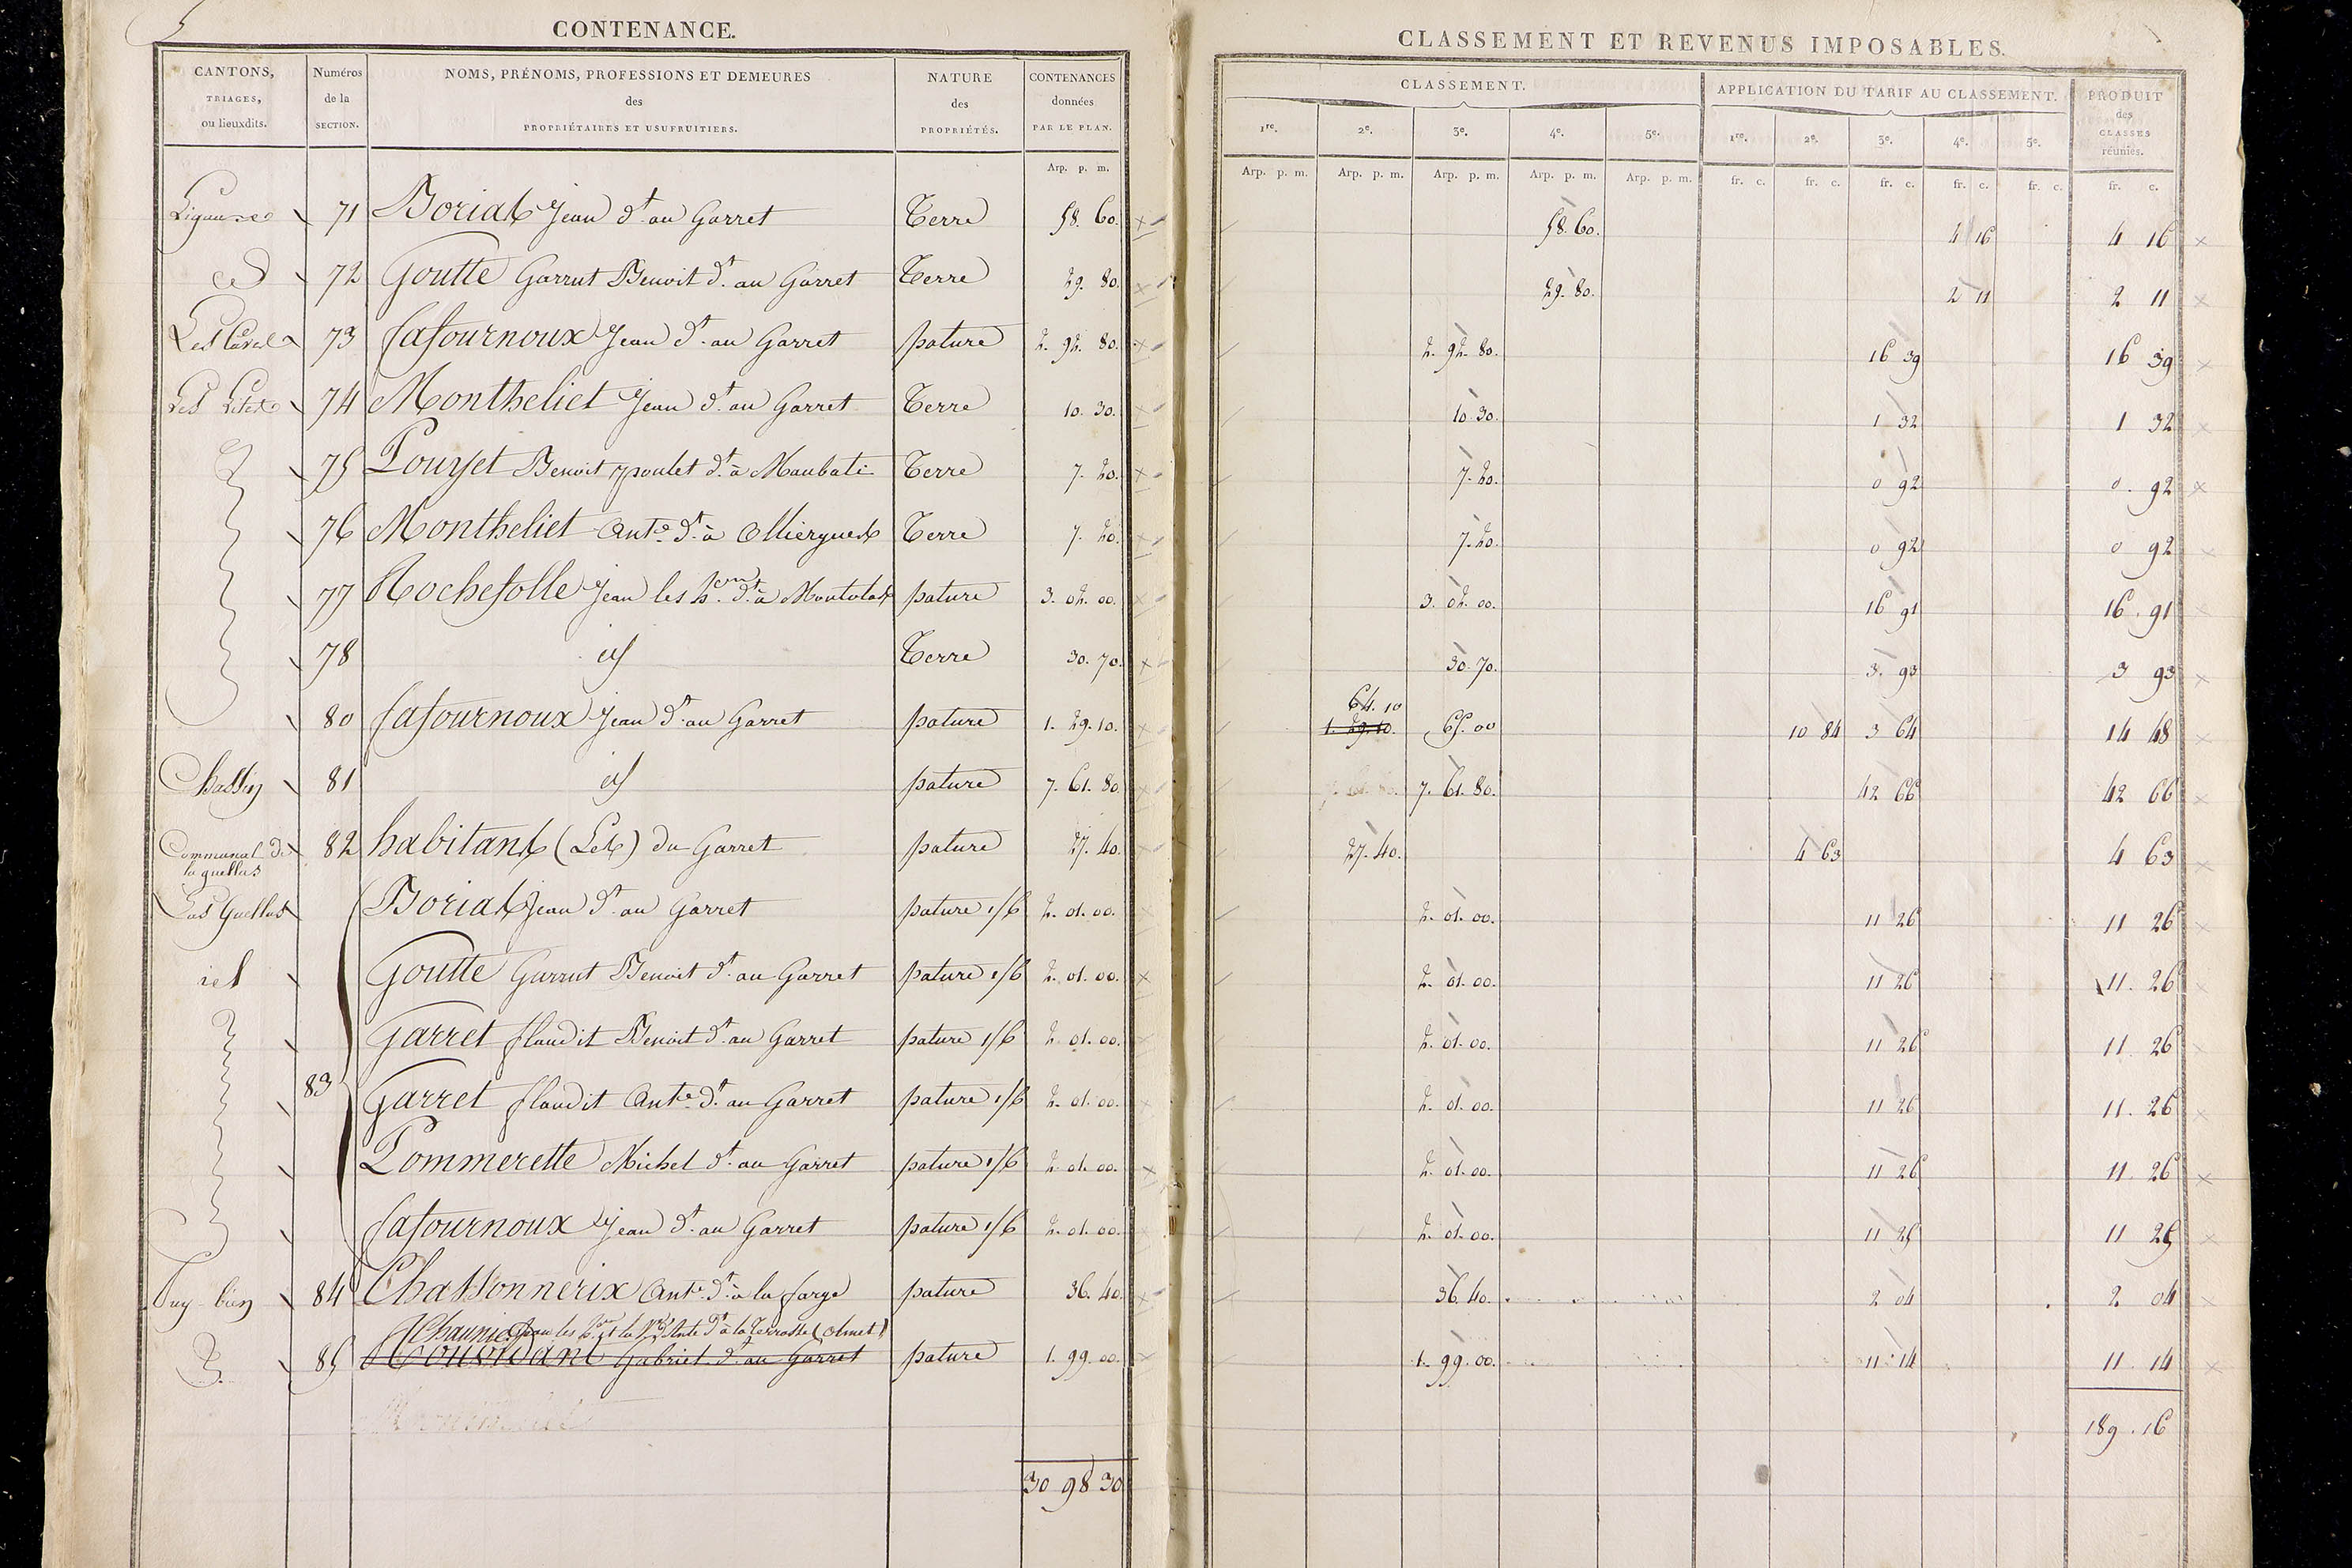 CONTENANCE.
CANTONS, TRIAGES, ou lieuxdits. Numéros de la SECTION. NOMS, PRÉNOMS, PROFESSIONS ET DEMEURES des PROPRIÉTAIRES ET USUFRUITIERS. NATURE des PROPRIÉTÉS. CONTENANCES données PAR LE PLAN.
Arp. p. m.
71 Borias Jean dt au Garret Terre 58. 60.
72 Goutte Garrut Benoit dt au Garret Terre 29. 80.
73 Lafournoux Jean dt au Garret pature 2. 92. 80.
74 Montheliet Jean dt au Garret Terre 10. 30.
75 Pouyet Benoit dt à Terre 7. 20.
76 Montheliet Ante dt à Terre 7. 20.
77 Rochefolle Jean les hers dt à pature 3. 02. 00.
78 id Terre 30. 70.
80 Lafournoux Jean dt au Garret pature 1. 29. 10.
Chassin 81 id pature 7. 61. 80.
Communal de 82 habitants (Les) du Garret pature 27. 40.
Las Guellas Borias Jean dt au Garret pature 1/6 2. 01. 00.
id Goutte Garrut Benoit dt au Garret pature 1/6 2. 01. 00.
Garret flaudit Benoit dt au Garret pature 1/6 2. 01. 00.
83 Garret flaudit Ante dt au Garret pature 1/6 2. 01. 00.
Pommerette Michel dt au Garret pature 1/6 2. 01. 00.
Lafournoux Jean dt au Garret pature 1/6 2. 01. 00.
Puy-bien 84 Chassonnerix Ante dt à la farge pature 36. 40.
Jean les et la dt à la Terrasse (olmet)
85 Gabriel dt au Garret pature 1. 99. 00.
30 98 30
CLASSEMENT ET REVENUS IMPOSABLES.
CLASSEMENT. APPLICATION DU TARIF AU CLASSEMENT. PRODUIT des CLASSES réunies.
1re. 2e. 3e. 4e. 5e. 1re. 2e. 3e. 4e. 5e.
Arp. p. m. Arp. p. m. Arp. p. m. Arp. p. m. Arp. p. m. fr. c. fr. c. fr. c. fr. c. fr. c. fr. c.
58. 60. 4 16 4 16
29. 80. 2 11 2 11
2. 92. 80. 16 39 16 39
10. 30. 1 32 1 32
7. 20. 0 92 0. 92
7. 20. 0 92 0 92
3. 02. 00. 16 91 16. 91
30. 70. 3. 93 3 93
64. 10
1. 29. 10. 65. 00 10 84 3 64 14 48
7. 61. 80. 42 66 42 66
27. 40. 4 63 4 63
2. 01. 00. 11 26 11 26
2. 01. 00. 11 26 11. 26
2. 01. 00. 11 26 11. 26
2. 01. 00. 11 26 11. 26
2. 01. 00. 11 26 11. 26
2. 01. 00. 11 25 11 25
36. 40. 2 04 2 04
1. 99. 00. 11 14 11 14
189. 16